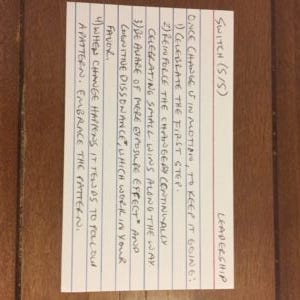 SWITCH (5/5) LEADERSHIP
ONCE CHANGE IS IN MOTION, TO KEEP IT GOING:
1) CELEBRATE THE FIRST STEP.
2) REINFORCE THE CHANGE BY CONTINUALLY
CELEBRATING SMALL WINS ALONG THE WAY
3) BE AWARE OF MERE EXPOSURE EFFECT* AND
COGNITIVE DISSONANCE* WHICH WORK IN YOUR
FAVOR.
4) WHEN CHANGE HAPPENS IT TENDS TO FOLLOW
A PATTERN. EMBRACE THE PATTERN.